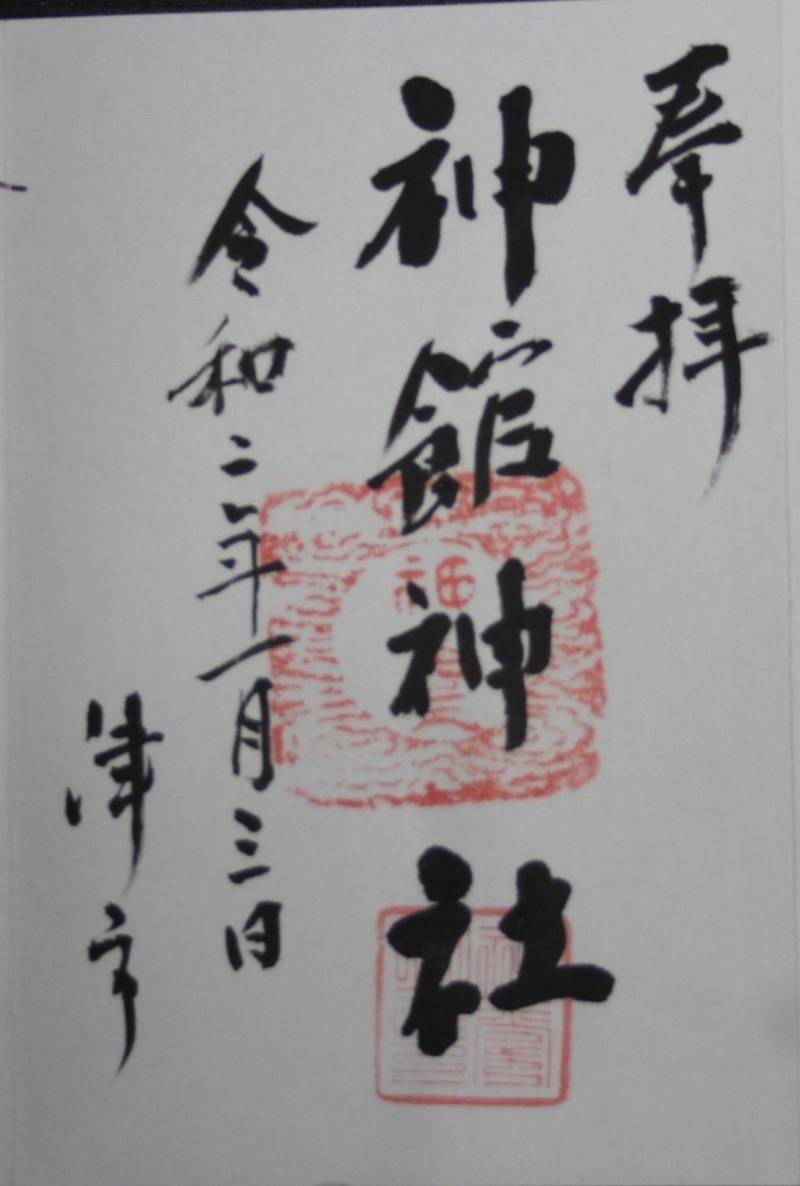 奉拝
神館神社
令和二年一月三日
津市